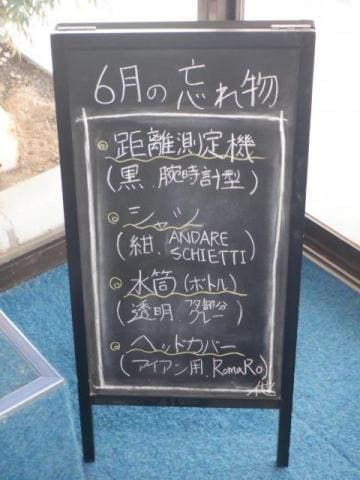 6月の忘れ物
距離測定機
(黒 腕時計型)
シャツ
(紺. ANDARE
SCHIETTI)
水筒(ボトル)
(透明 フタ部分
グレー)
ヘッドカバー
(アイアン用. RomaRo)
他